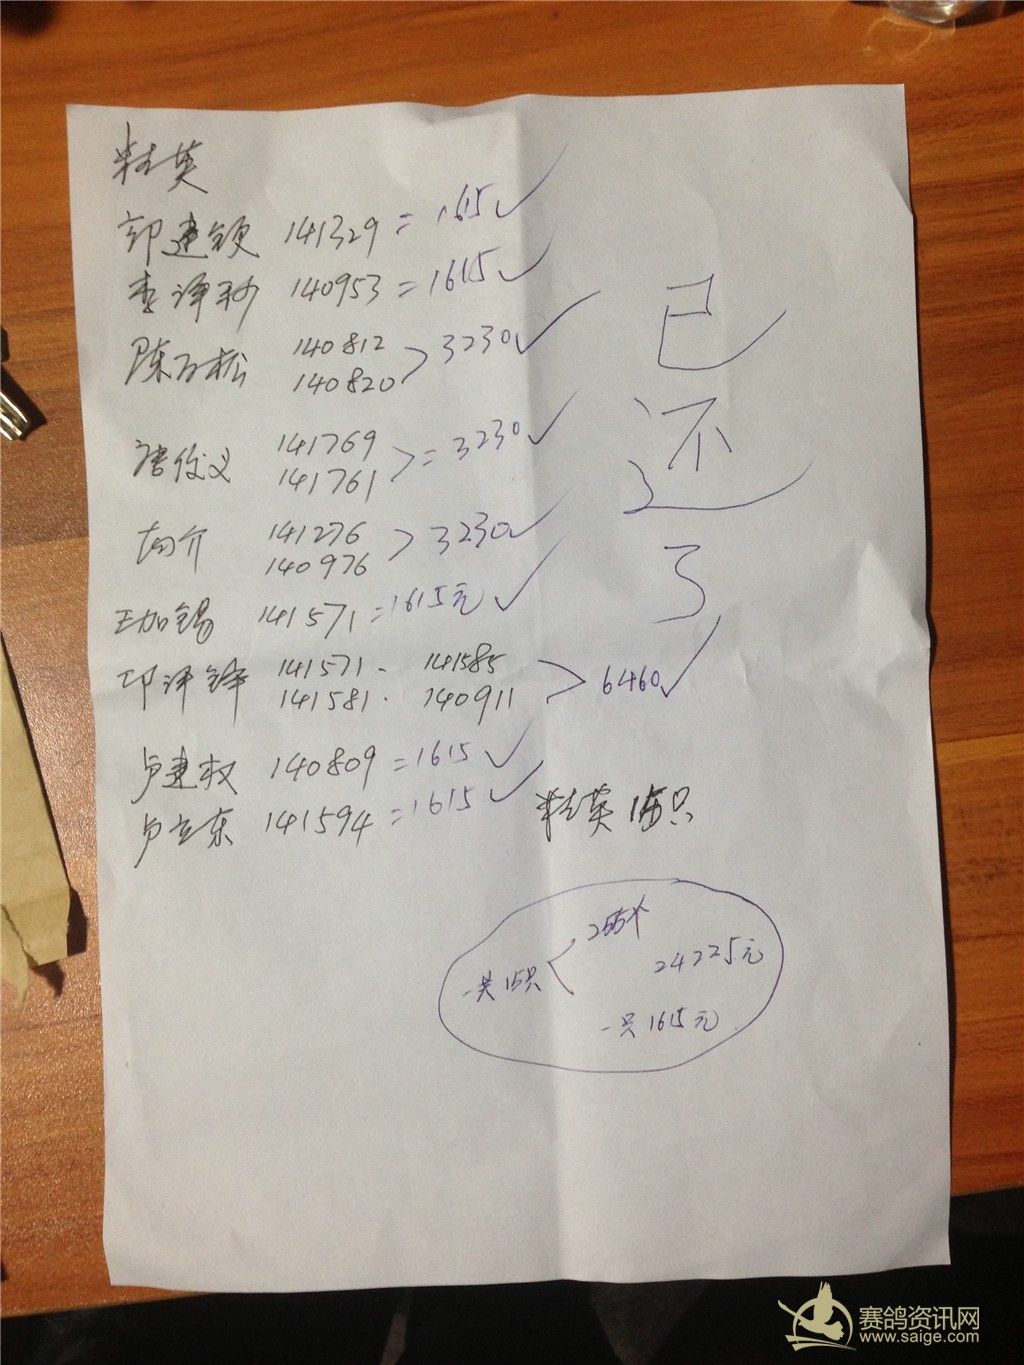 精英
郭建领 141329 = 1615 ✓
李泽彬 140953 = 1615 ✓
陈百松 140812
140820 > 3230 ✓
唐俊义 141769
141761 > = 3230 ✓
141276
140976 > 3230 ✓
王加锡 141571 = 1615元 ✓
邱泽锋 141571. 141585
141581. 140911 > 6460 ✓
卢建权 140809 = 1615 ✓
卢立东 141594 = 1615 ✓
已
还
了
精英 15只
一共15只 <
24225元
一只1615元
赛鸽资讯网
www.saige.com